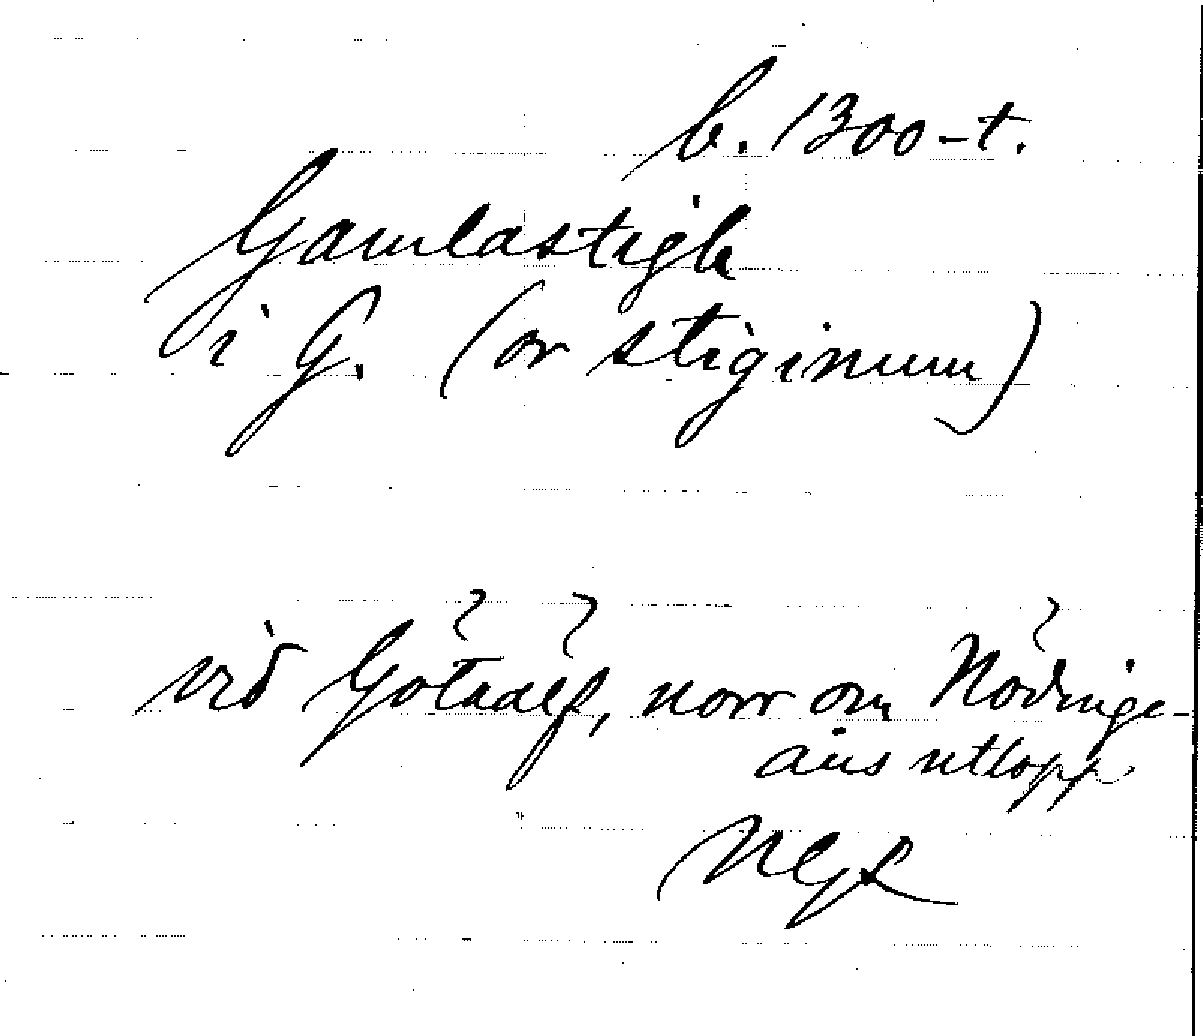 b. 1300-t.
Gamlastigh
i G. (or stiginum)
við Götaälf, norr om Nödinge-
åns utlopp
NGL